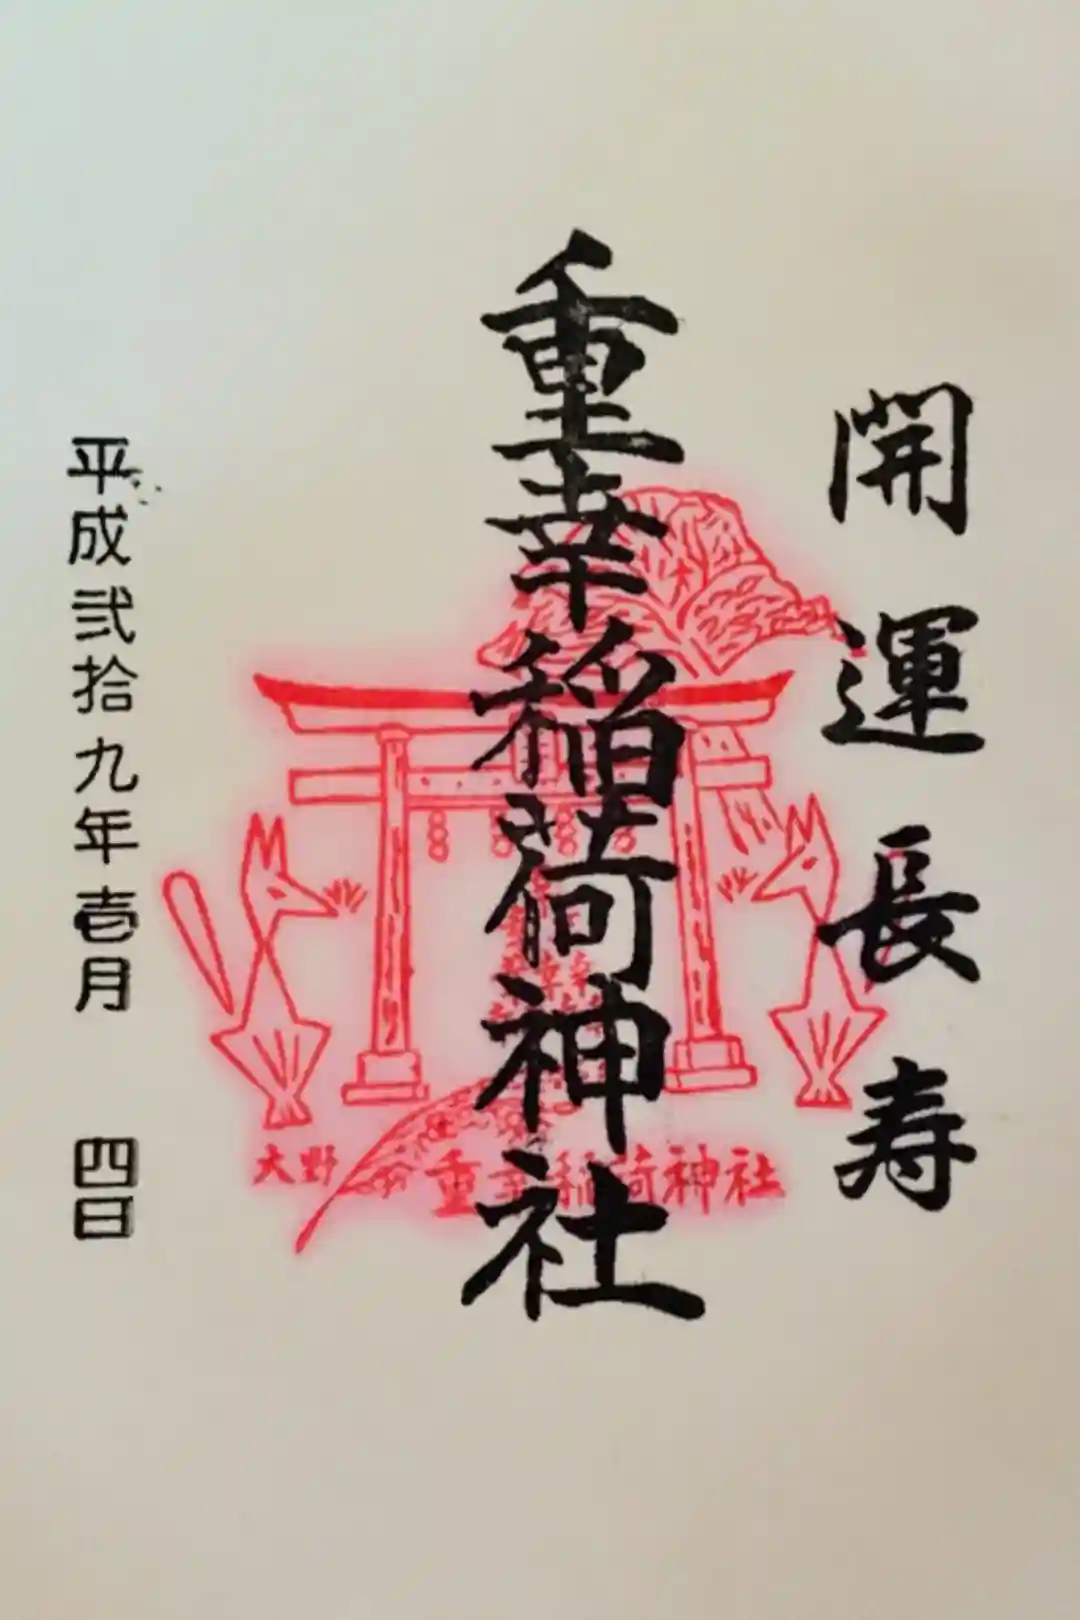 開運長寿
重幸稲荷神社
平成弐拾九年壱月 四日
大野 重幸稲荷神社